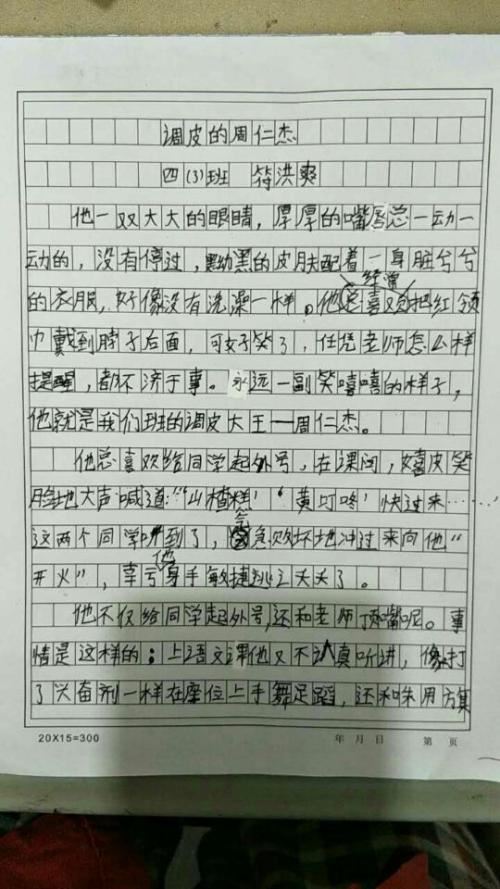 调皮的周仁杰
四(3)班 符洪爽
他一双大大的眼睛，厚厚的嘴唇总一动一
动的，没有停过，黝黑的皮肤配着一身脏兮兮
的衣服，好像没有洗澡一样。他经常把红领
巾戴到脖子后面，可好笑了，任凭老师怎么样
提醒，都不济于事。永远一副笑嘻嘻的样子，
他就是我们班的调皮大王——周仁杰。
他总喜欢给同学起外号，在课间，嬉皮笑
脸地大声喊道：“‘山楂糕’‘黄叮咚’快过来……”
这两个同学听到了，气急败坏地冲过来向他“
开火”，幸亏他身手敏捷逃之夭夭了。
他不仅给同学起外号，还和老师顶嘴呢。事
情是这样的：上语文课他又不认真听讲，像打
了兴奋剂一样在座位上手舞足蹈，还和
用方
20X15=300
年 月 日 第 页